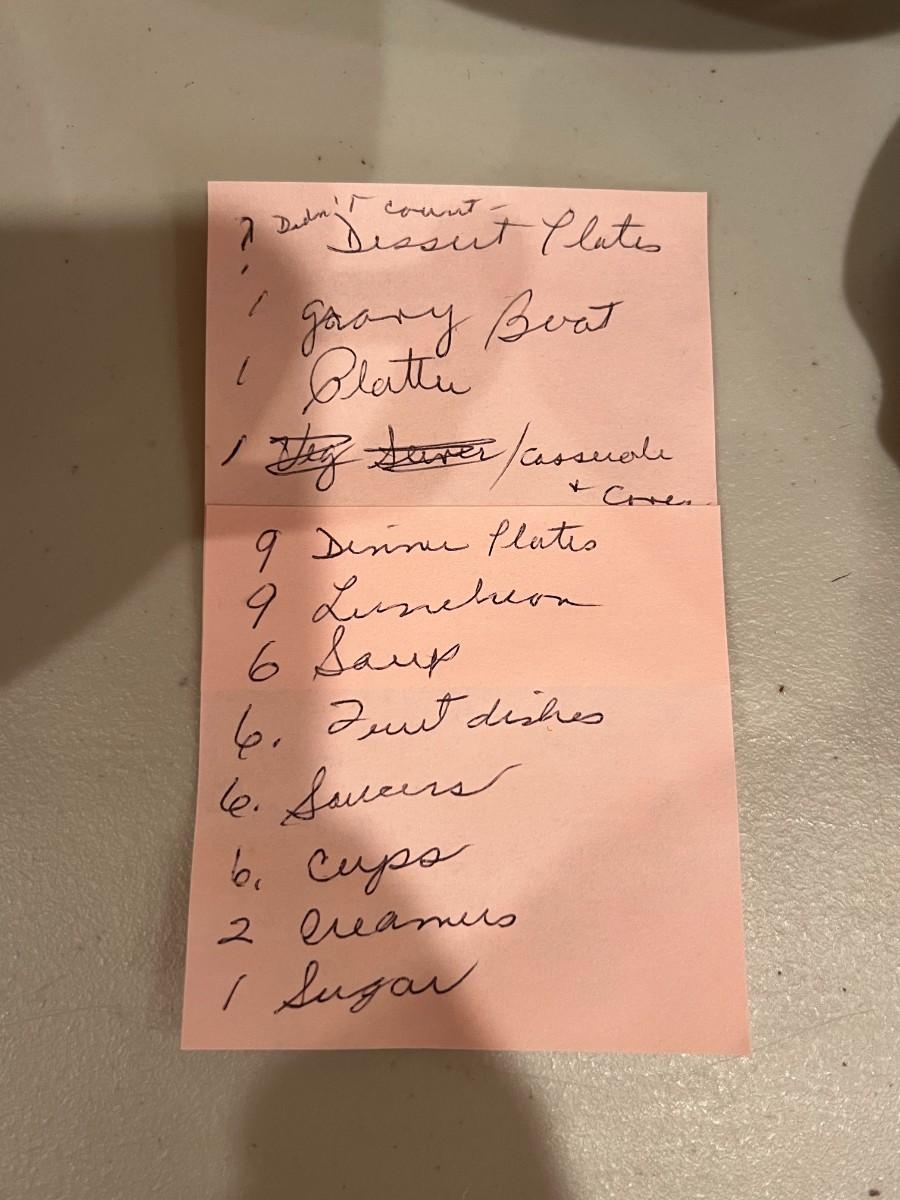 ? Didn't count -
Dessert Plates
1 Gravy Boat
1 Platter
1 Veg Server / Casserole
+ Cover
9 Dinner Plates
9 Luncheon
6 Soup
6. Fruit dishes
6. Saucers
6. Cups
2 Creamers
1 Sugar